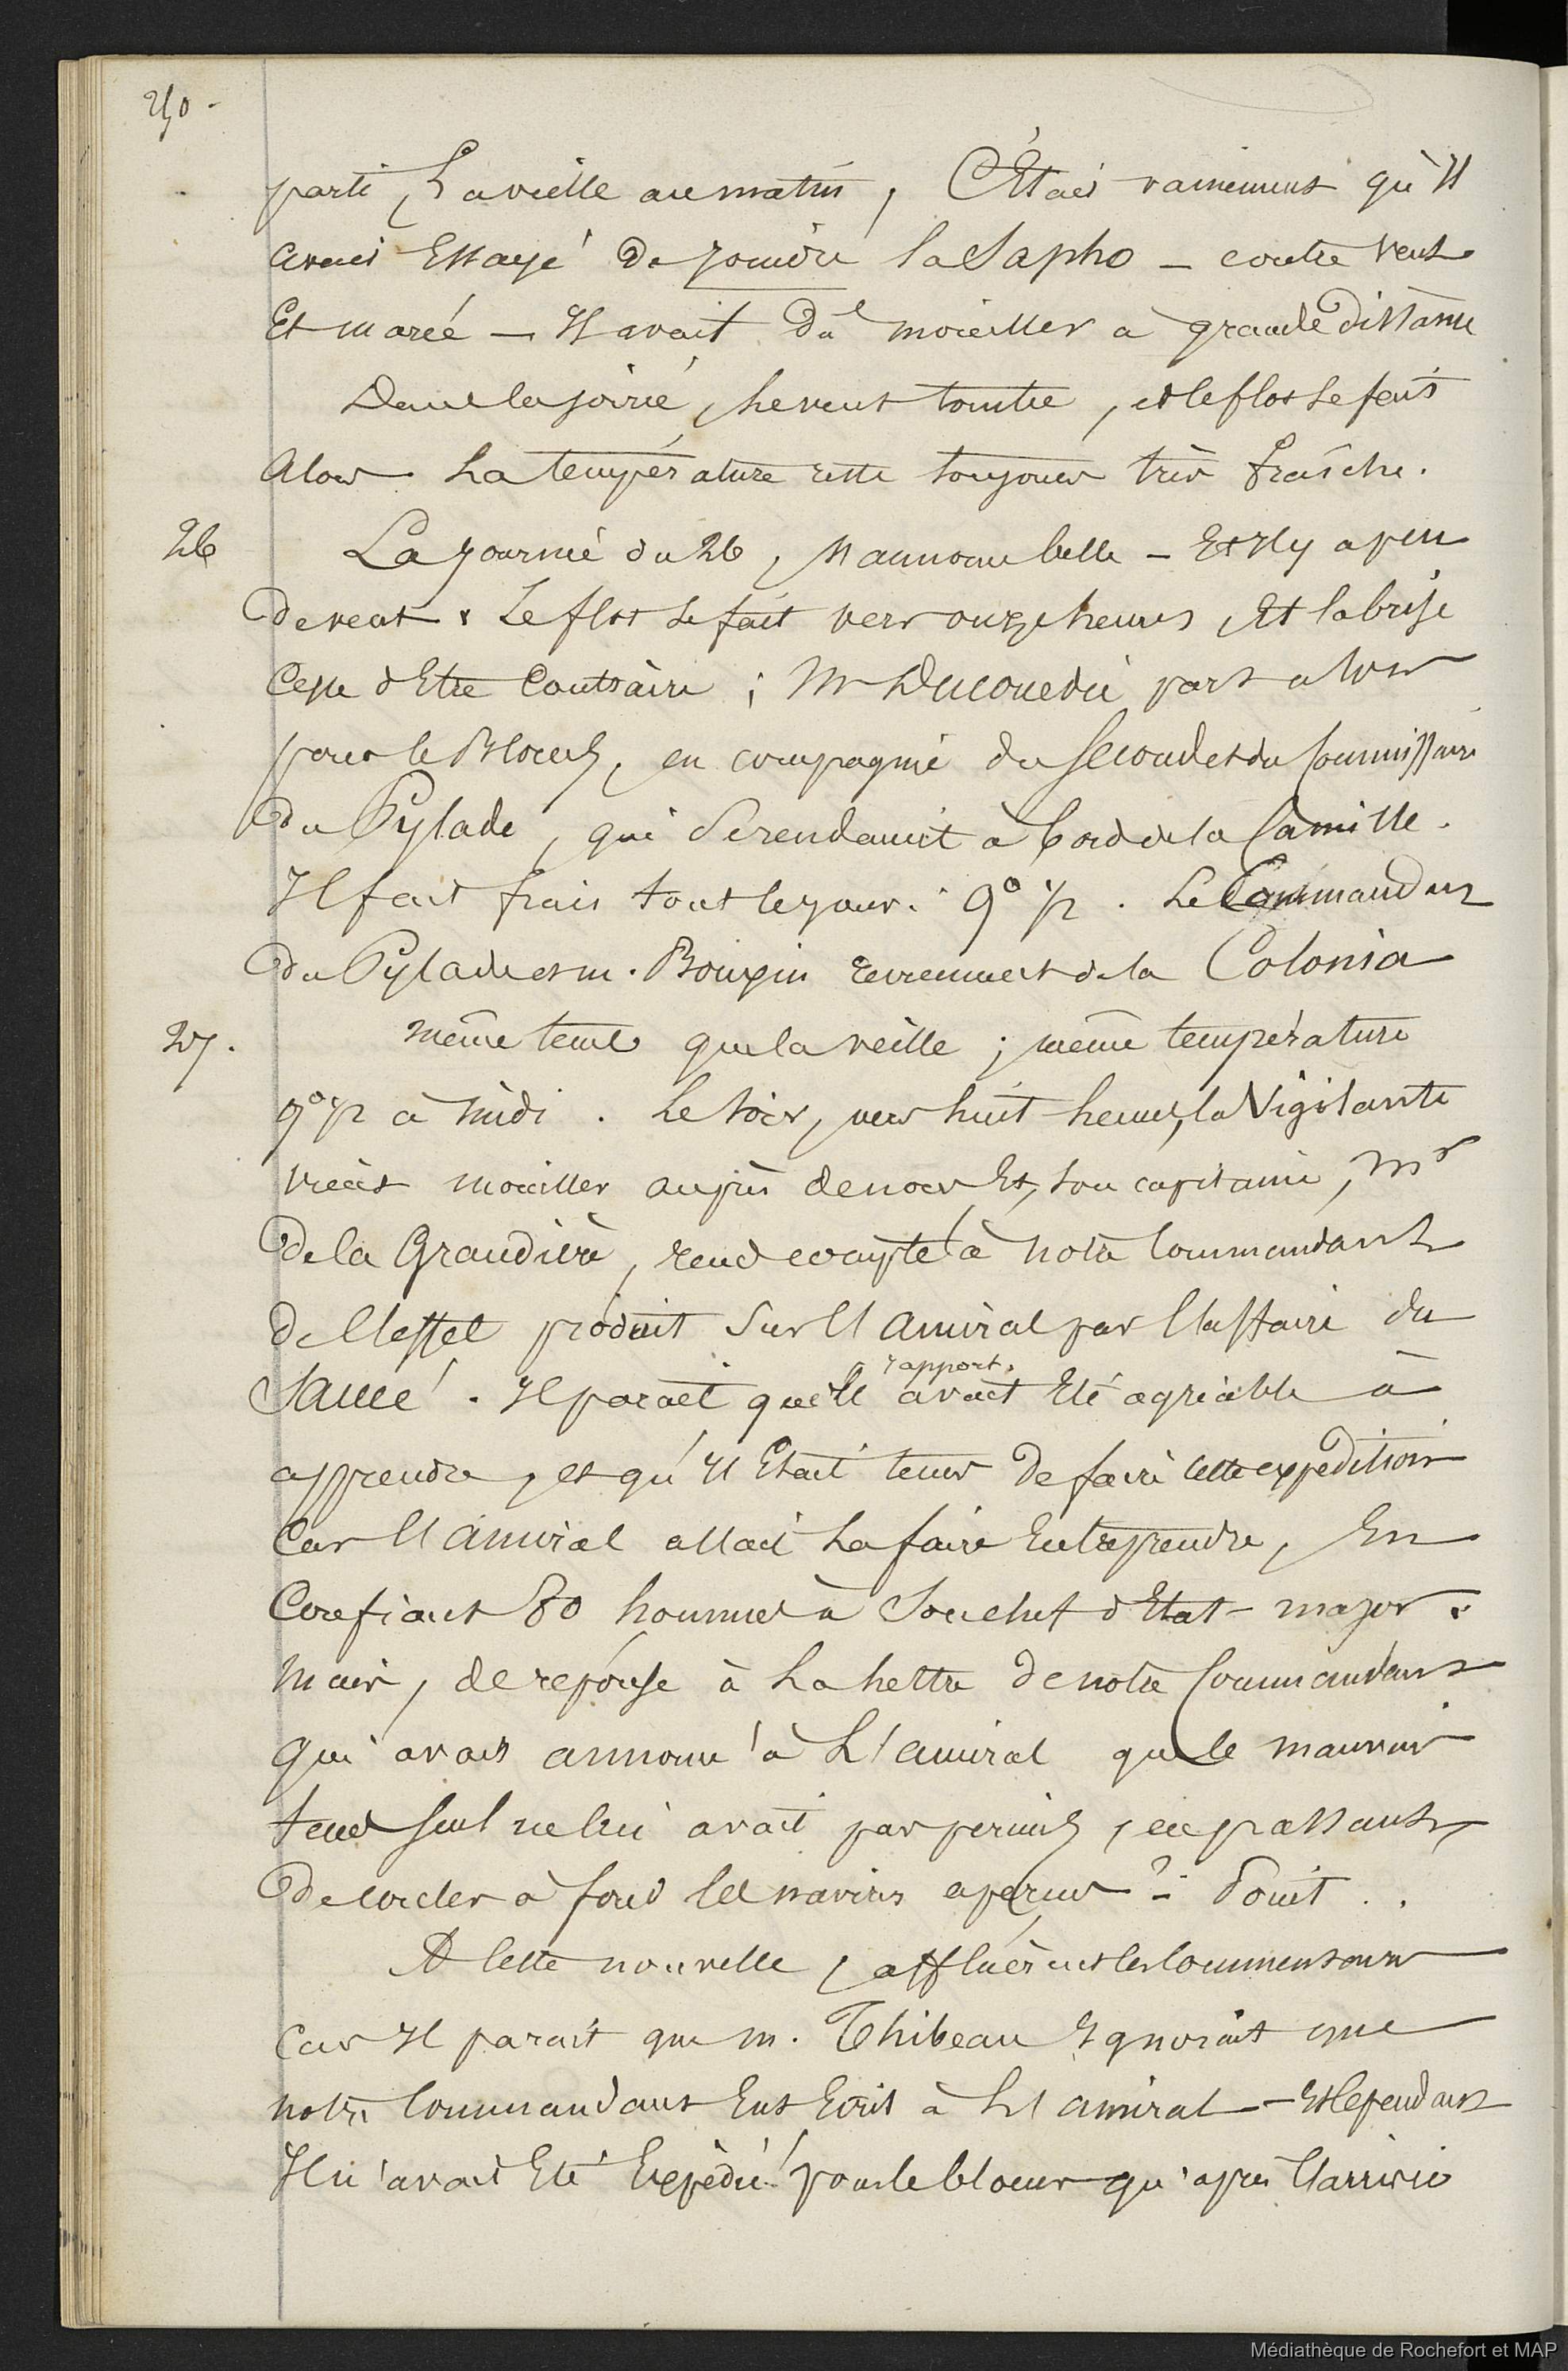 250 -
parti, La veille au matin, C'Etait vainement qu'Il
avait Essayé De joindre la Sapho - contre vent
Et marée - Il avait Dû mouiller a grande Distance
Dans la soirée, le vent tombe, et le flot se fait
Alors La température reste toujours très fraîche.
26 La journée du 26, s'annonce belle - Et Il y a peu
De vent. Le flot se fait vers onze heures, Et la brise
Cesse d'Etre Contraire ; Mr Ducouedic part alors
pour le Blocus, en compagnie du Second et du Commissaire
Du Pylade, qui Se rendaient à bord de la Camille.
Il fait frais tout le jour. 9° 1/2. Le Commandant
Du Pylade et m. Boupin reviennent de la Colonia
27. même temps que la veille ; même température
9° 1/2 à midi. Le soir, vers huit heures, la Vigilante
vient mouiller auprès de nous Et, son capitaine, Mr
De la Grandière, rend compte à notre Commandant
De l'effet produit Sur l'Amiral par l'affaire du
Saucé. Il parait que le rapport. avait Eté agréable à
apprendre, et qu'Il Etait tems De faire cette expédition
Car l'Amiral allait La faire Entreprendre, En
Confiant 80 hommes à Son chef d'Etat-major.
Mais, de réponse à La lettre De notre Commandant
qui avait annoncé à L'amiral que le mauvais
tems seul ne lui avait pas permis, en passant,
De couler à fond les navires aperçus ? - Point . .
A Cette nouvelle, affluèrent les Commentaires
Car Il parait que m. Thibeau Ignorait que
notre Commandant Eut Ecrit à L'amiral - Et Cependant
Il n'avait Eté Expédié pour le blocus qu'après l'arrivée
Médiathèque de Rochefort et MAP